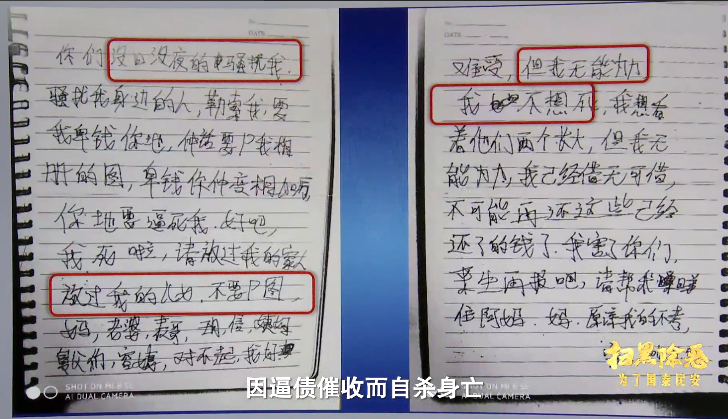 No.
DATE
你们没日没夜的骚扰我.
骚扰我身边的人,勒索我,要
我卑钱你地,仲话要P我相
册的图,卑钱你仲变相加
你地要逼死我.好吧,
我死啦,请放过我的家人
放过我的儿女.不要P图,
妈,老婆,表哥,
对不起,我好
SHOT ON MI 8 SE
AI DUAL CAMERA
No.
DATE
难受,但我无能为力
我不想死,我想看
着他们两个长大,但我无
能为力,我已经借无可借,
不可能再还这些已经
还了的钱了.我害了你们.
来生再报吧,请帮我
住阿妈.妈.原谅我的不孝,
SHOT ON MI 8 SE
AI DUAL CAMERA
扫黑除恶
为了国泰民安
因逼债催收而自杀身亡